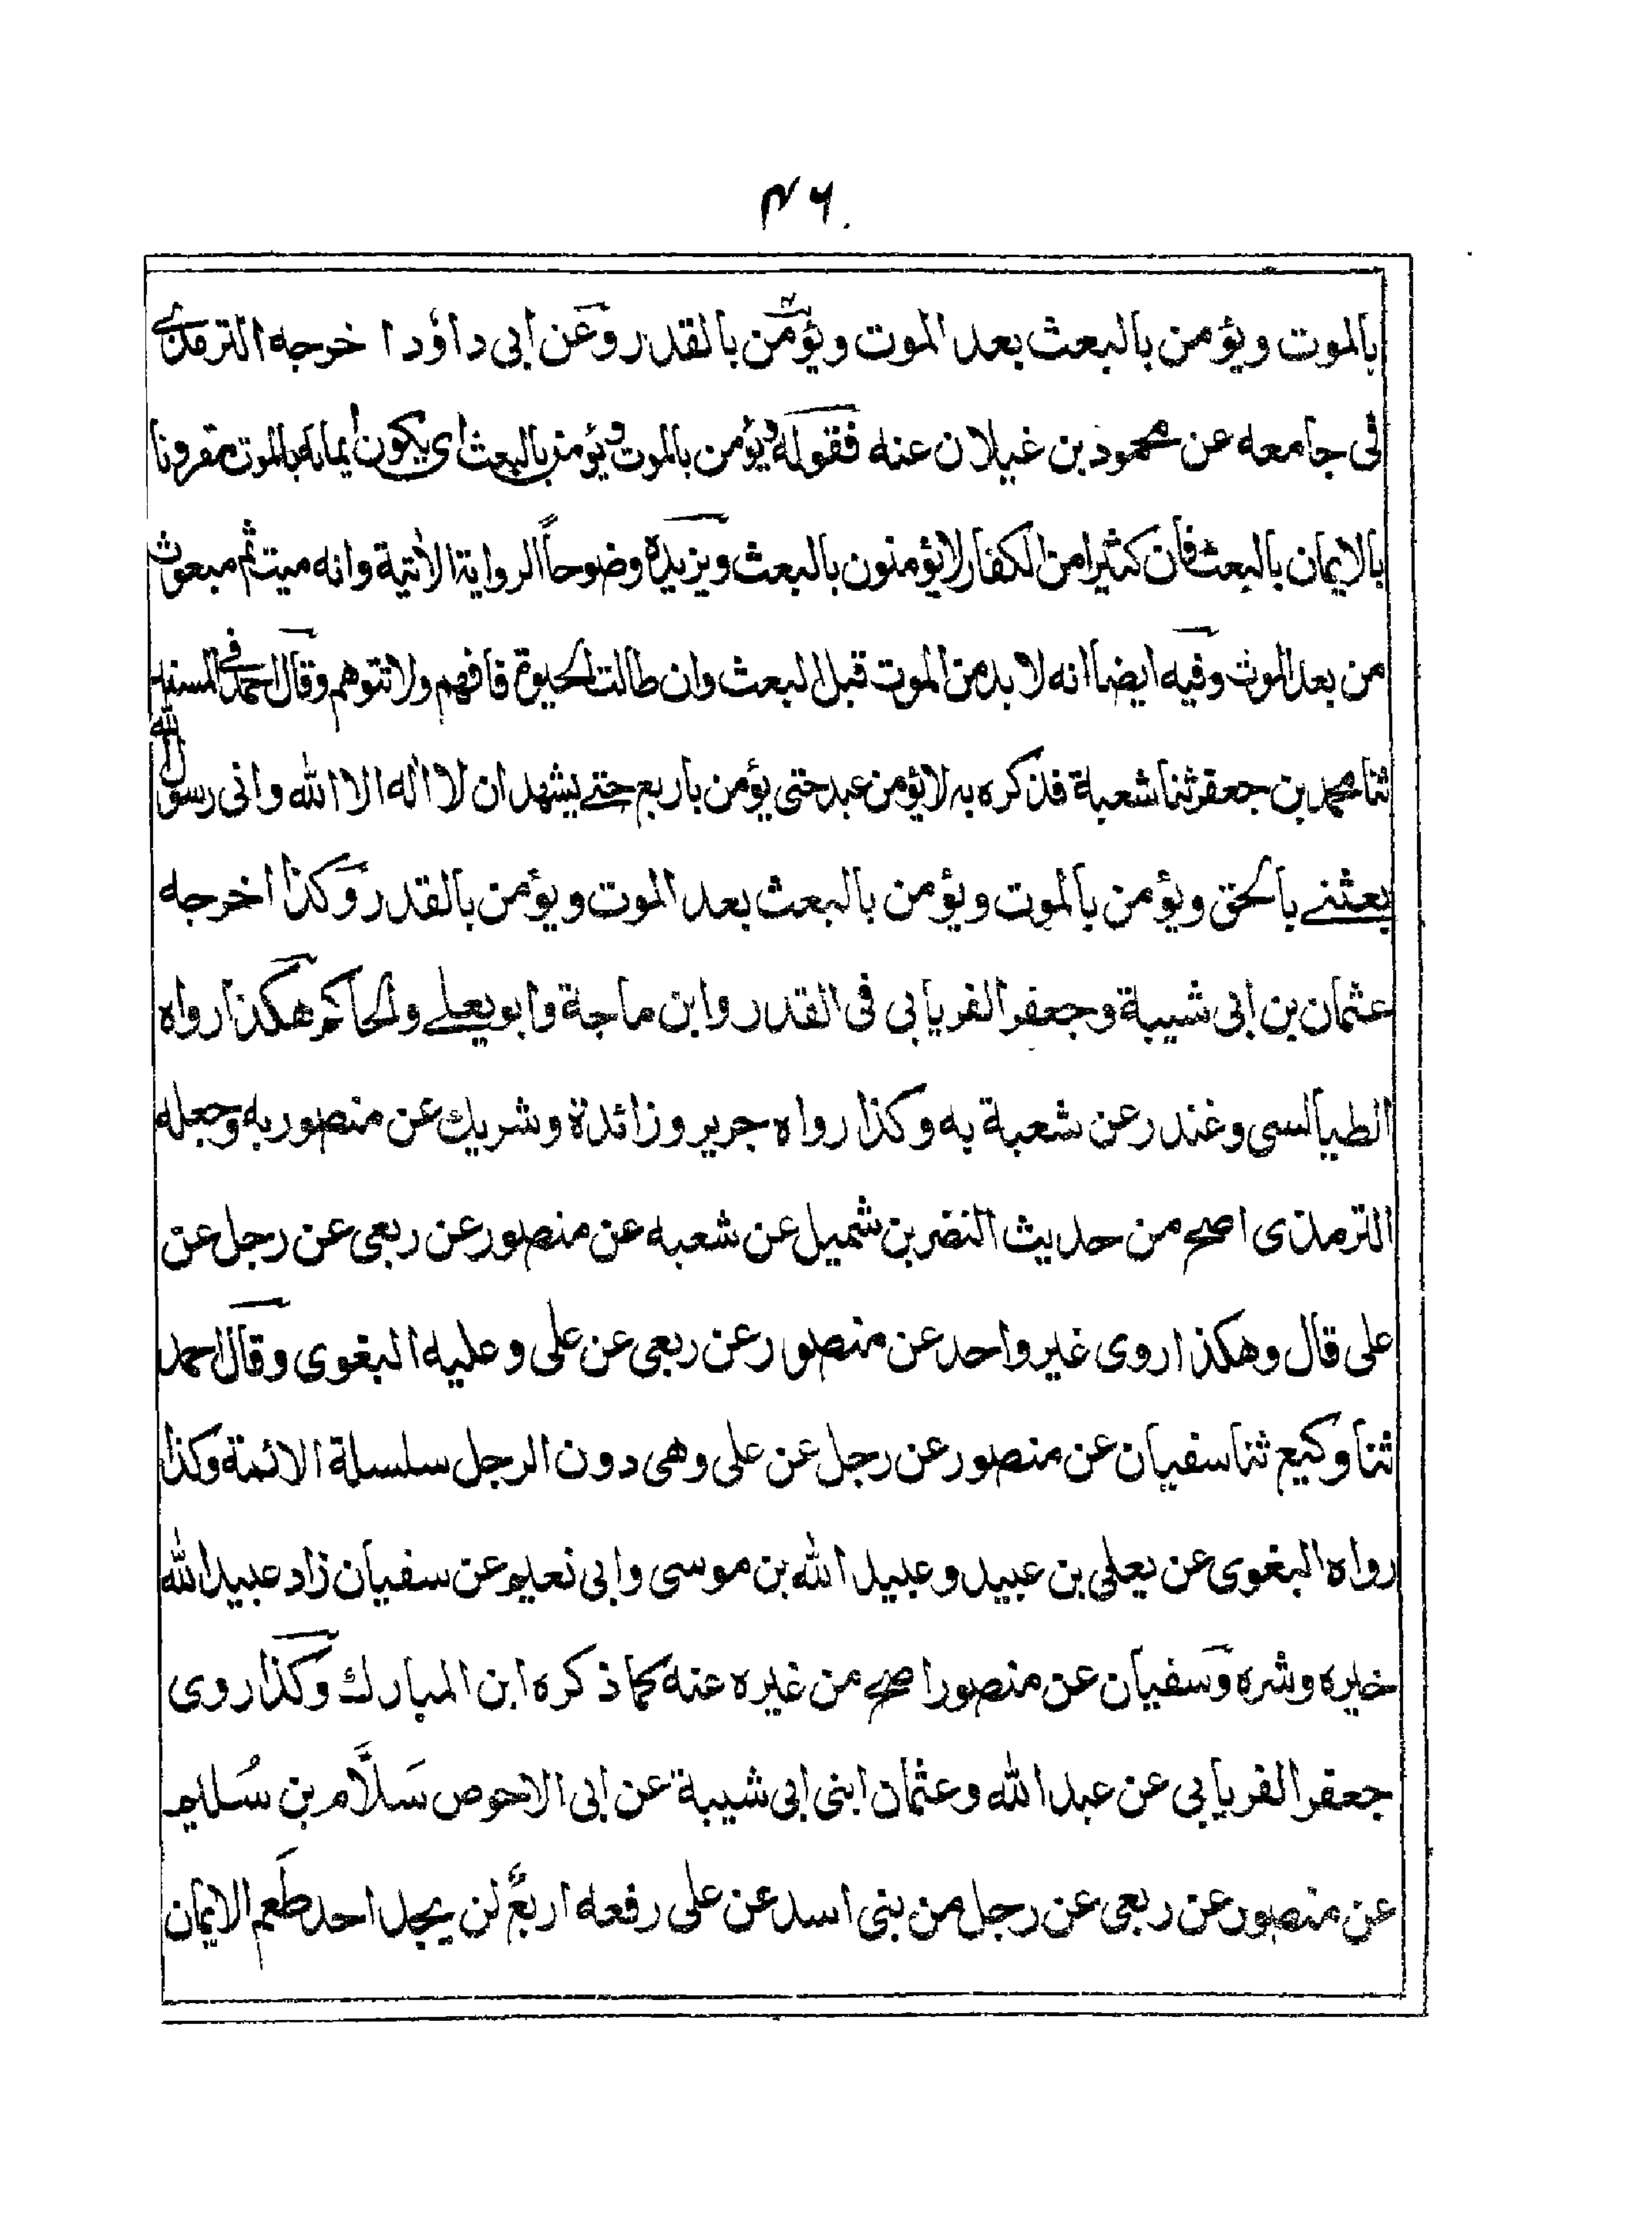 ۴۶
بالموت ويؤمن بالبعث بعد الموت ويؤمن بالقدر وعن ابى داؤد اخرجه الترمذى
فى جامعه عن محمود بن غيلان عنه فقوله ويؤمن بالموت ويؤمن بالبعث اى يكون ايمانه بالموت مقرونا
بالايمان بالبعث فان كثيرا من الكفار لايؤمنون بالبعث ويزيده وضوحاً الرواية الاٰتية وانه ميت ثم مبعوث
من بعد الموت وفيه ايضا انه لا بد من الموت قبل البعث وان طالت الحيوة فافهم ولا تتوهم وقال احمد فى المسند
ثنا محمد بن جعفر ثنا شعبة فذكره به لايؤمن عبد حتى يؤمن باربع حتے يشهد ان لا اله الا الله وانى رسول الله
بعثنے بالحق ويؤمن بالموت ويؤمن بالبعث بعد الموت ويؤمن بالقدر وكذا اخرجه
عثمان بن ابى شيبة وجعفر الفريابى فى القدر وابن ماجة وابو يعلے والحاكم هكذا رواه
الطيالسى وغندر عن شعبة به وكذا رواه جرير وزائدة وشريك عن منصور به وجعله
الترمذى اصح من حديث النضر بن شميل عن شعبه عن منصور عن ربعى عن رجل عن
على قال وهكذا روى غير واحد عن منصور عن ربعى عن على وعليه البغوى وقال احمد
ثنا وكيع ثنا سفيان عن منصور عن رجل عن على وهى دون الرجل سلسلة الائمة وكذا
رواه البغوى عن يعلى بن عبيد وعبيد الله بن موسى وابى نعيم عن سفيان زاد عبيد الله
خيره وشره وسفيان عن منصور اصح من غيره عنه كما ذكره ابن المبارك وكذا روى
جعفر الفريابى عن عبد الله وعثمان ابنى ابى شيبة عن ابى الاحوص سَلَّام بن سُليم
عن منصور عن ربعى عن رجل من بنى اسد عن على رفعه اربعٌ لن يجد احد طَعم الايمان